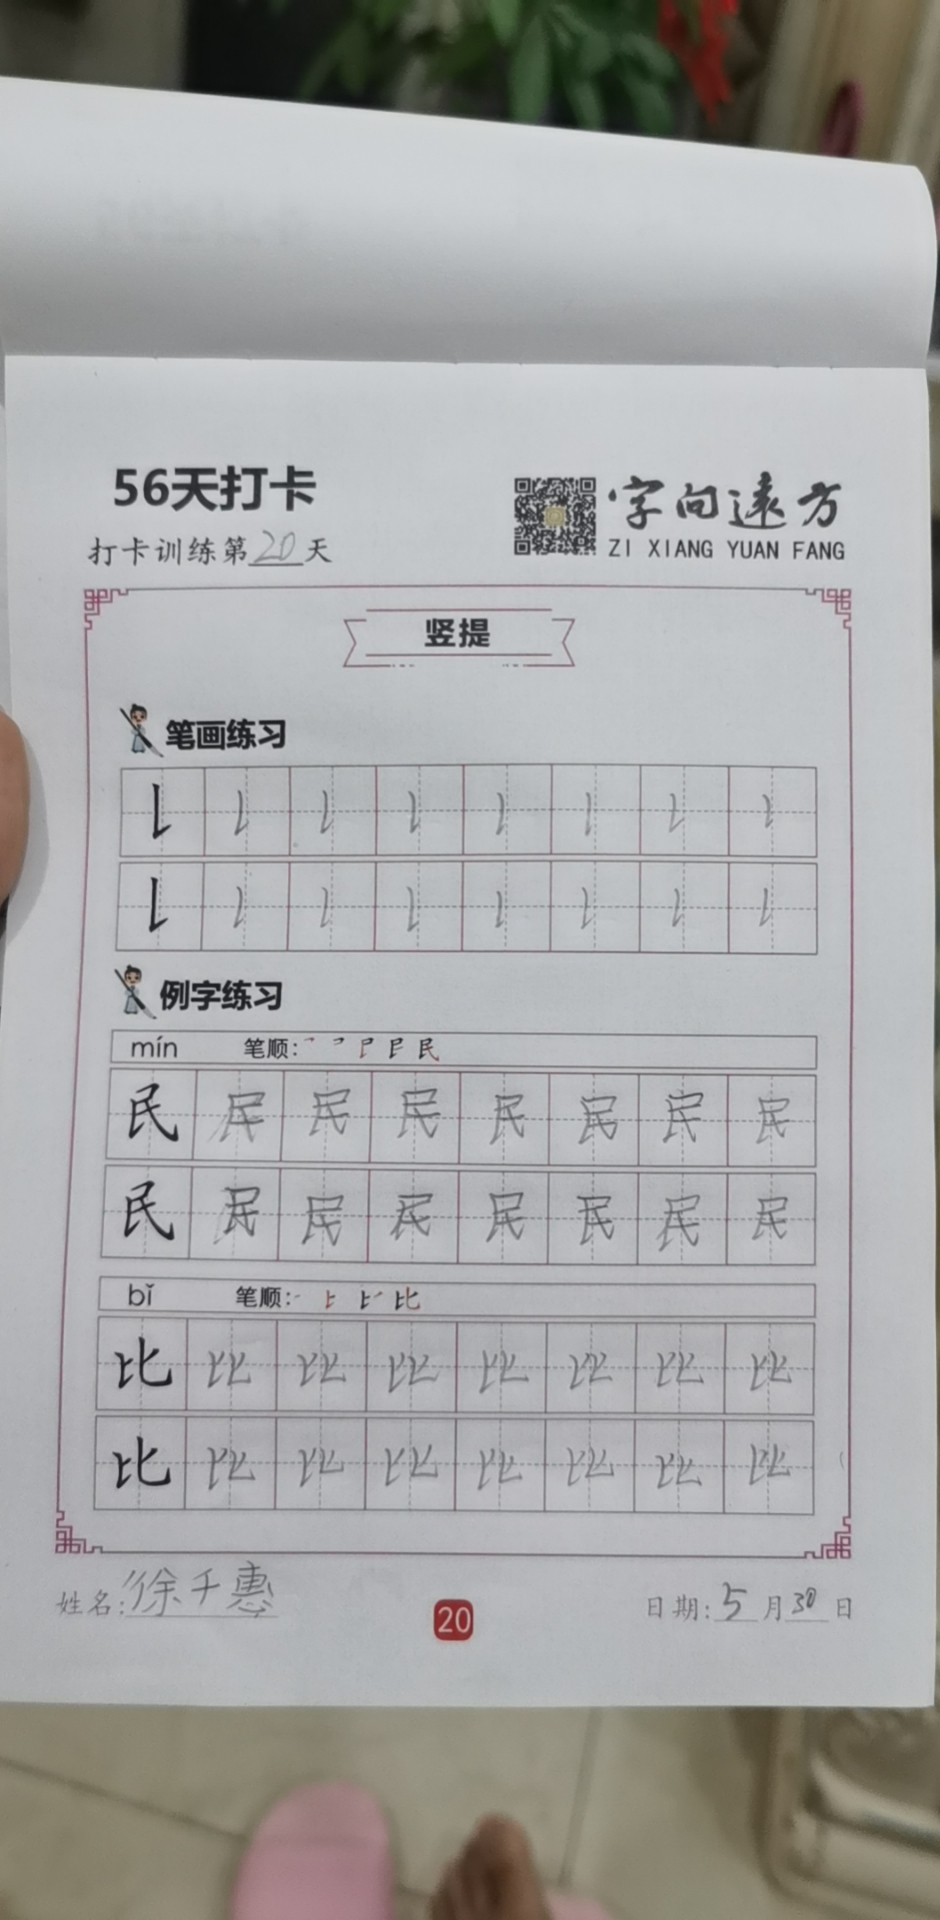 56天打卡
打卡训练第20天
字向遠方
ZI XIANG YUAN FANG
竖提
笔画练习
例字练习
mín 笔顺:
民 民 民 民 民 民 民 民
民 民 民 民 民 民 民 民
bǐ 笔顺:
比 比 比 比 比 比 比 比
比 比 比 比 比 比 比 比
姓名:徐千惠
20
日期:5月30日